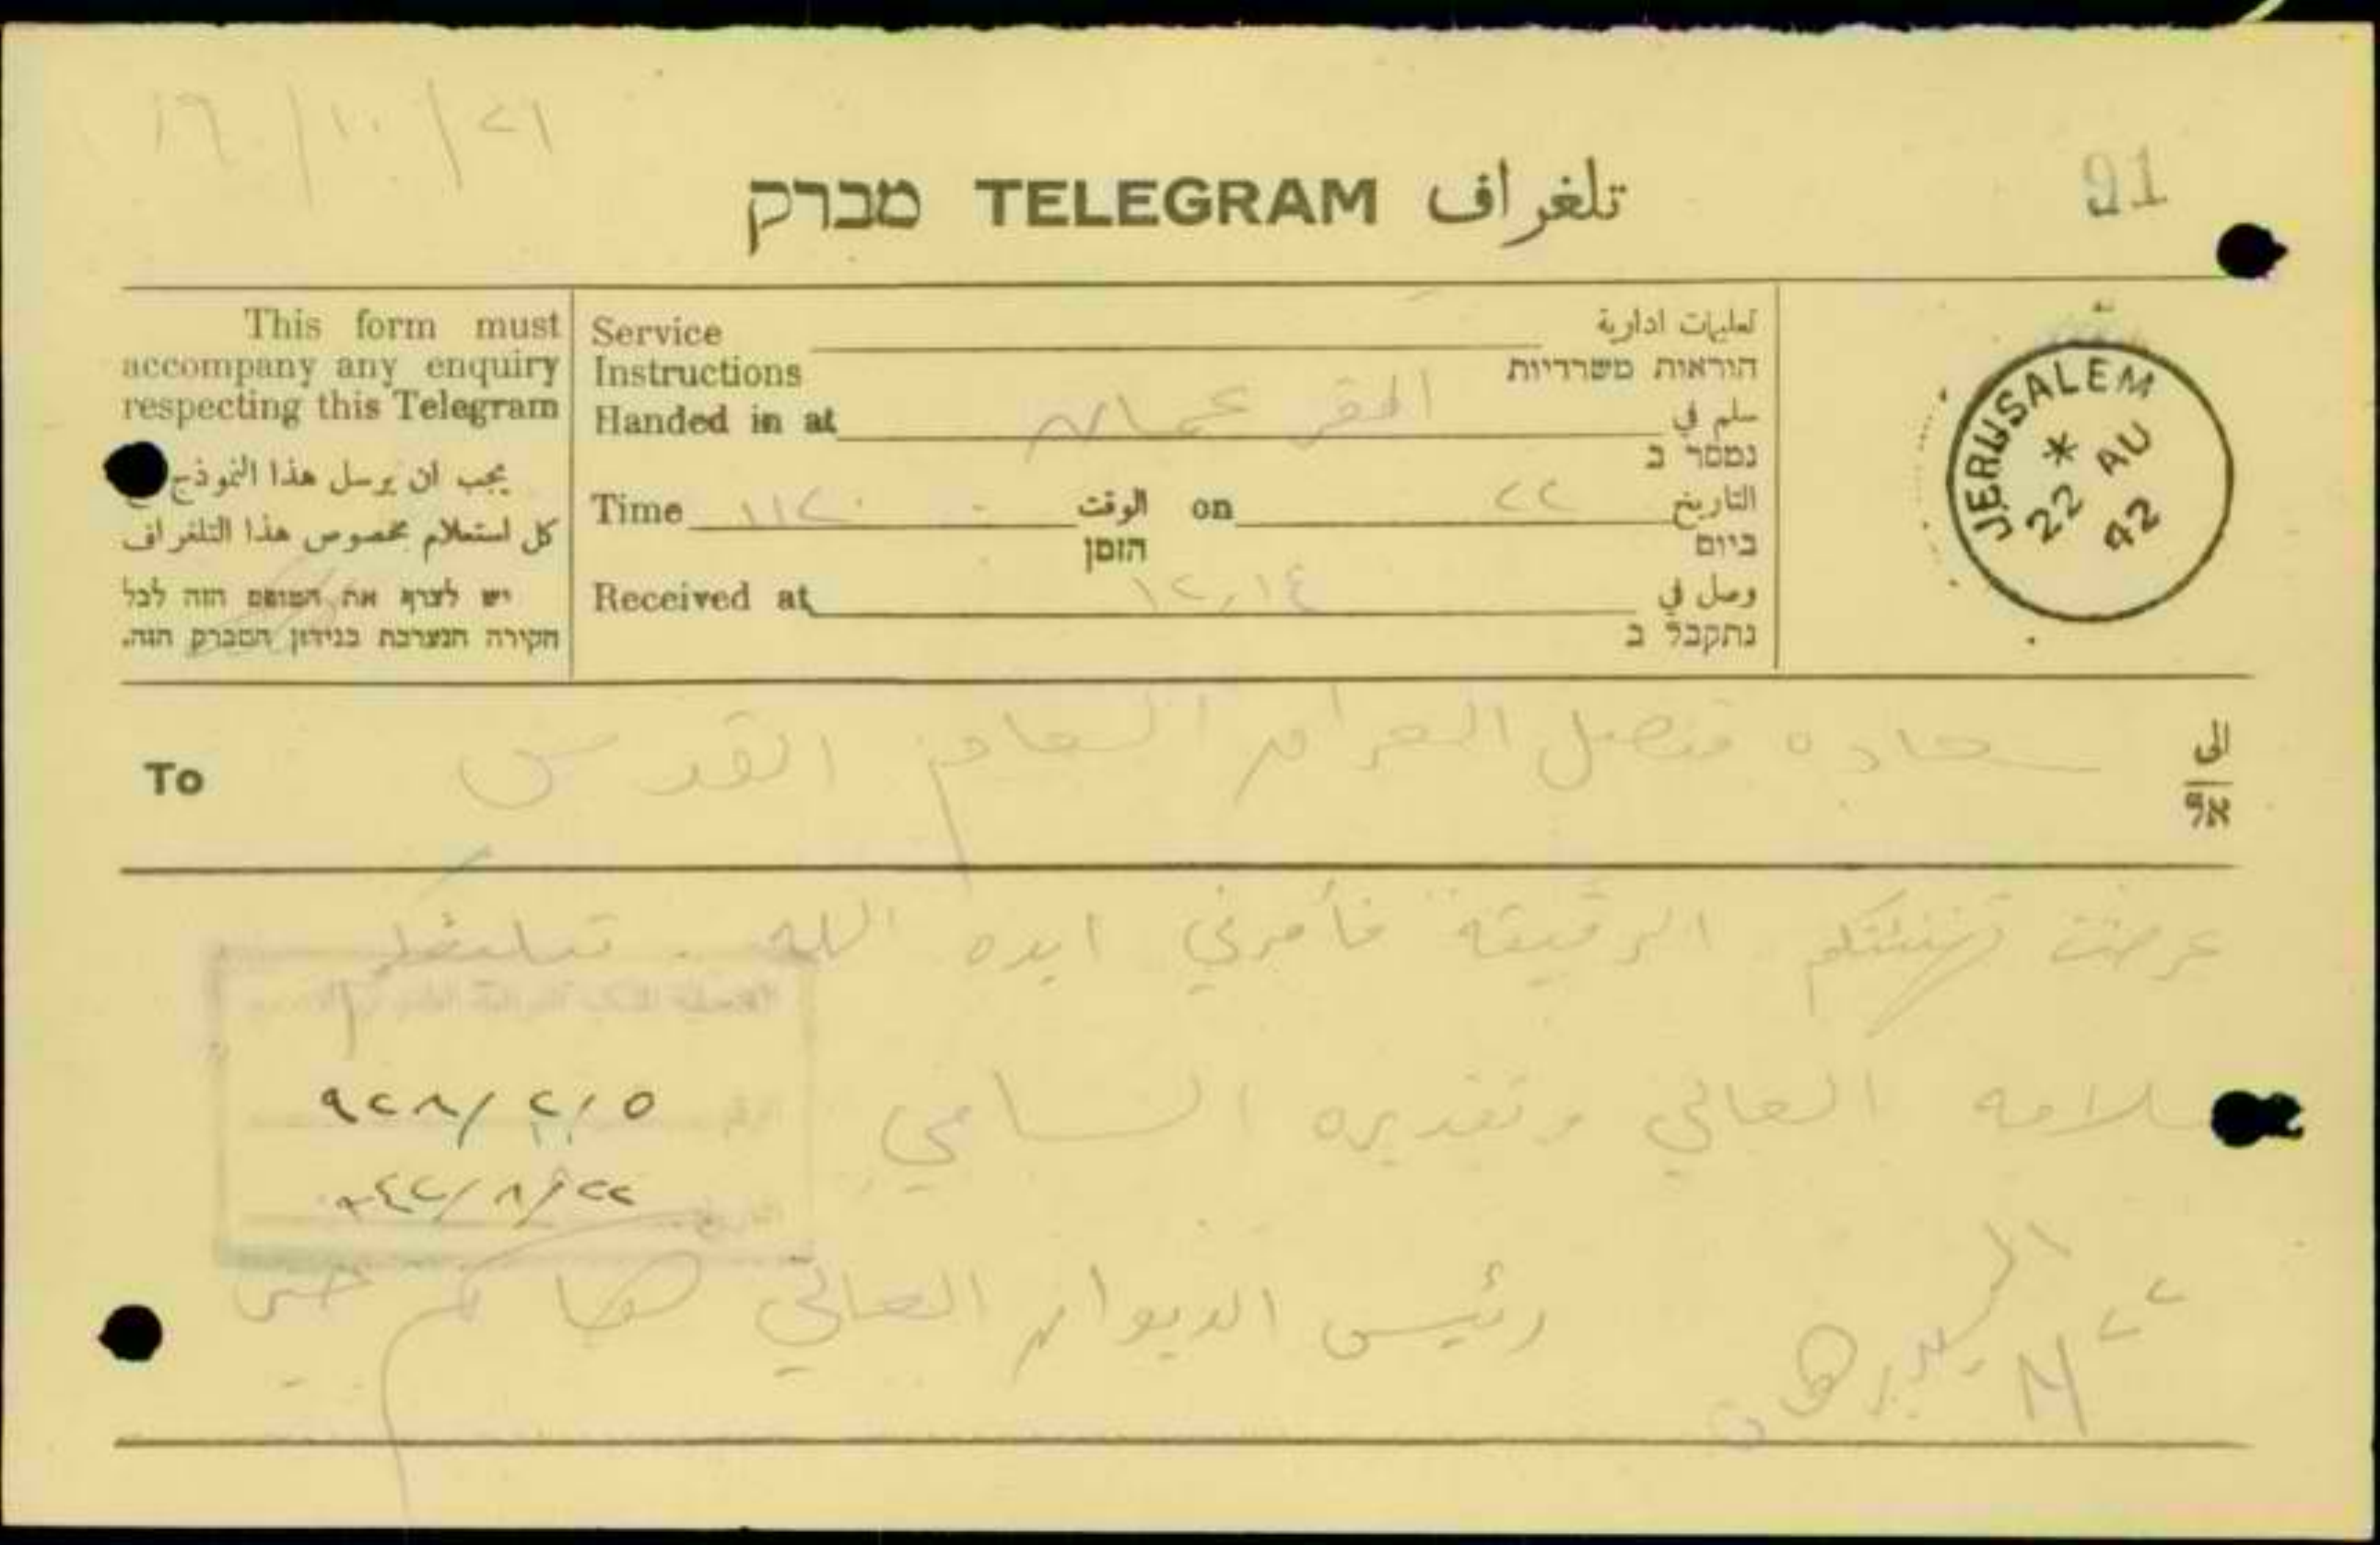 ١٦/١٠/٢١
91
מברק TELEGRAM تلغراف
This form must
accompany any enquiry
respecting this Telegram
يجب ان يرسل هذا النموذج
كل استعلام بخصوص هذا التلغراف
יש לצרף את הטופס הזה לכל
חקירה הנערכת בנידון המברק הזה.
Service تعليمات ادارية
Instructions הוראות משרדיות
Handed in at المقر عمان سلم في
נמסר ב
Time ١١٢٠ الوقت on ٢٢ التاريخ
הזמן ביום
Received at ١٢,١٤ وصل في
נתקבל ב
JERUSALEM
22 AU
42
To سعادة قنصل العراق العام القدس الى
אל
عرضت تهنئتكم الرقيقة فأمرني ايده الله تبليغكم
سلامه العالي وتقديره السامي
الرقم ٩٢٨/٢/٥
التاريخ ٩٤٢/٨/٢٢
رئيس الديوان العالي